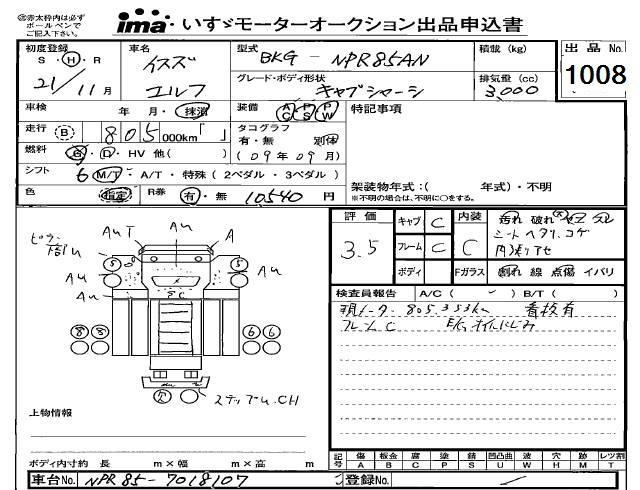 ima・いすゞモーターオークション出品申込書
初度登録 車名 型式 積載(kg) 出品No.
S・H・R イスズ BKG-NPR85AN
21/11月 エルフ グレード・ボディ形状 排気量(cc) 1008
キャブシャーシ 3,000
車検 年 月・抹消 装備 AC PS PW 特記事項
走行 B 805,000km「 」 タコグラフ
有・無 別体
燃料 G・D・HV 他( ) (09年09月)
シフト 6 M/T・A/T・特殊(2ペダル・3ペダル)
架装物年式:( 年式)・不明
色 指定 R券 有・無 10540円 ※不明の場合は、不明に○をする。
評価 キャブ C 内装 汚れ 破れ
3.5 フレーム C C シートヘタリ、コゲ
内張リアセ
ボディ Fガラス 割れ 線 点傷 イバリ
検査員報告 A/C( ) B/T( )
現メーター 805,353km 看板有
フレームC E/Gオイルにじみ
AuT A
Au Au
Au Au
C
8 8 6 6
ステップu、CH
上物情報
ボディ内寸約 長 m×幅 m×高 m
記号 傷 板金 腐 塗 錆 凹凸曲 波 穴 跡 レツ割
A B C P S U W H M T
車台No. NPR85-7018107 登録No.